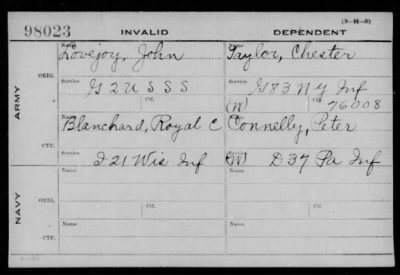 (3-H-5)
98023 INVALID DEPENDENT
Name Name
Lovejoy, John Taylor, Chester
ARMY
ORIG.
Service Service
G 2 U S S S G 83 N Y Inf
Ctf. (W) Ctf. 76008
Name
Blanchard, Royal C Connelly, Peter
CTF.
Service
I 21 Wis Inf (W) D 37 Pa Inf
NAVY
Name Name
ORIG.
Service Ctf. Service Ctf.
Name Name
CTF.
Service Service